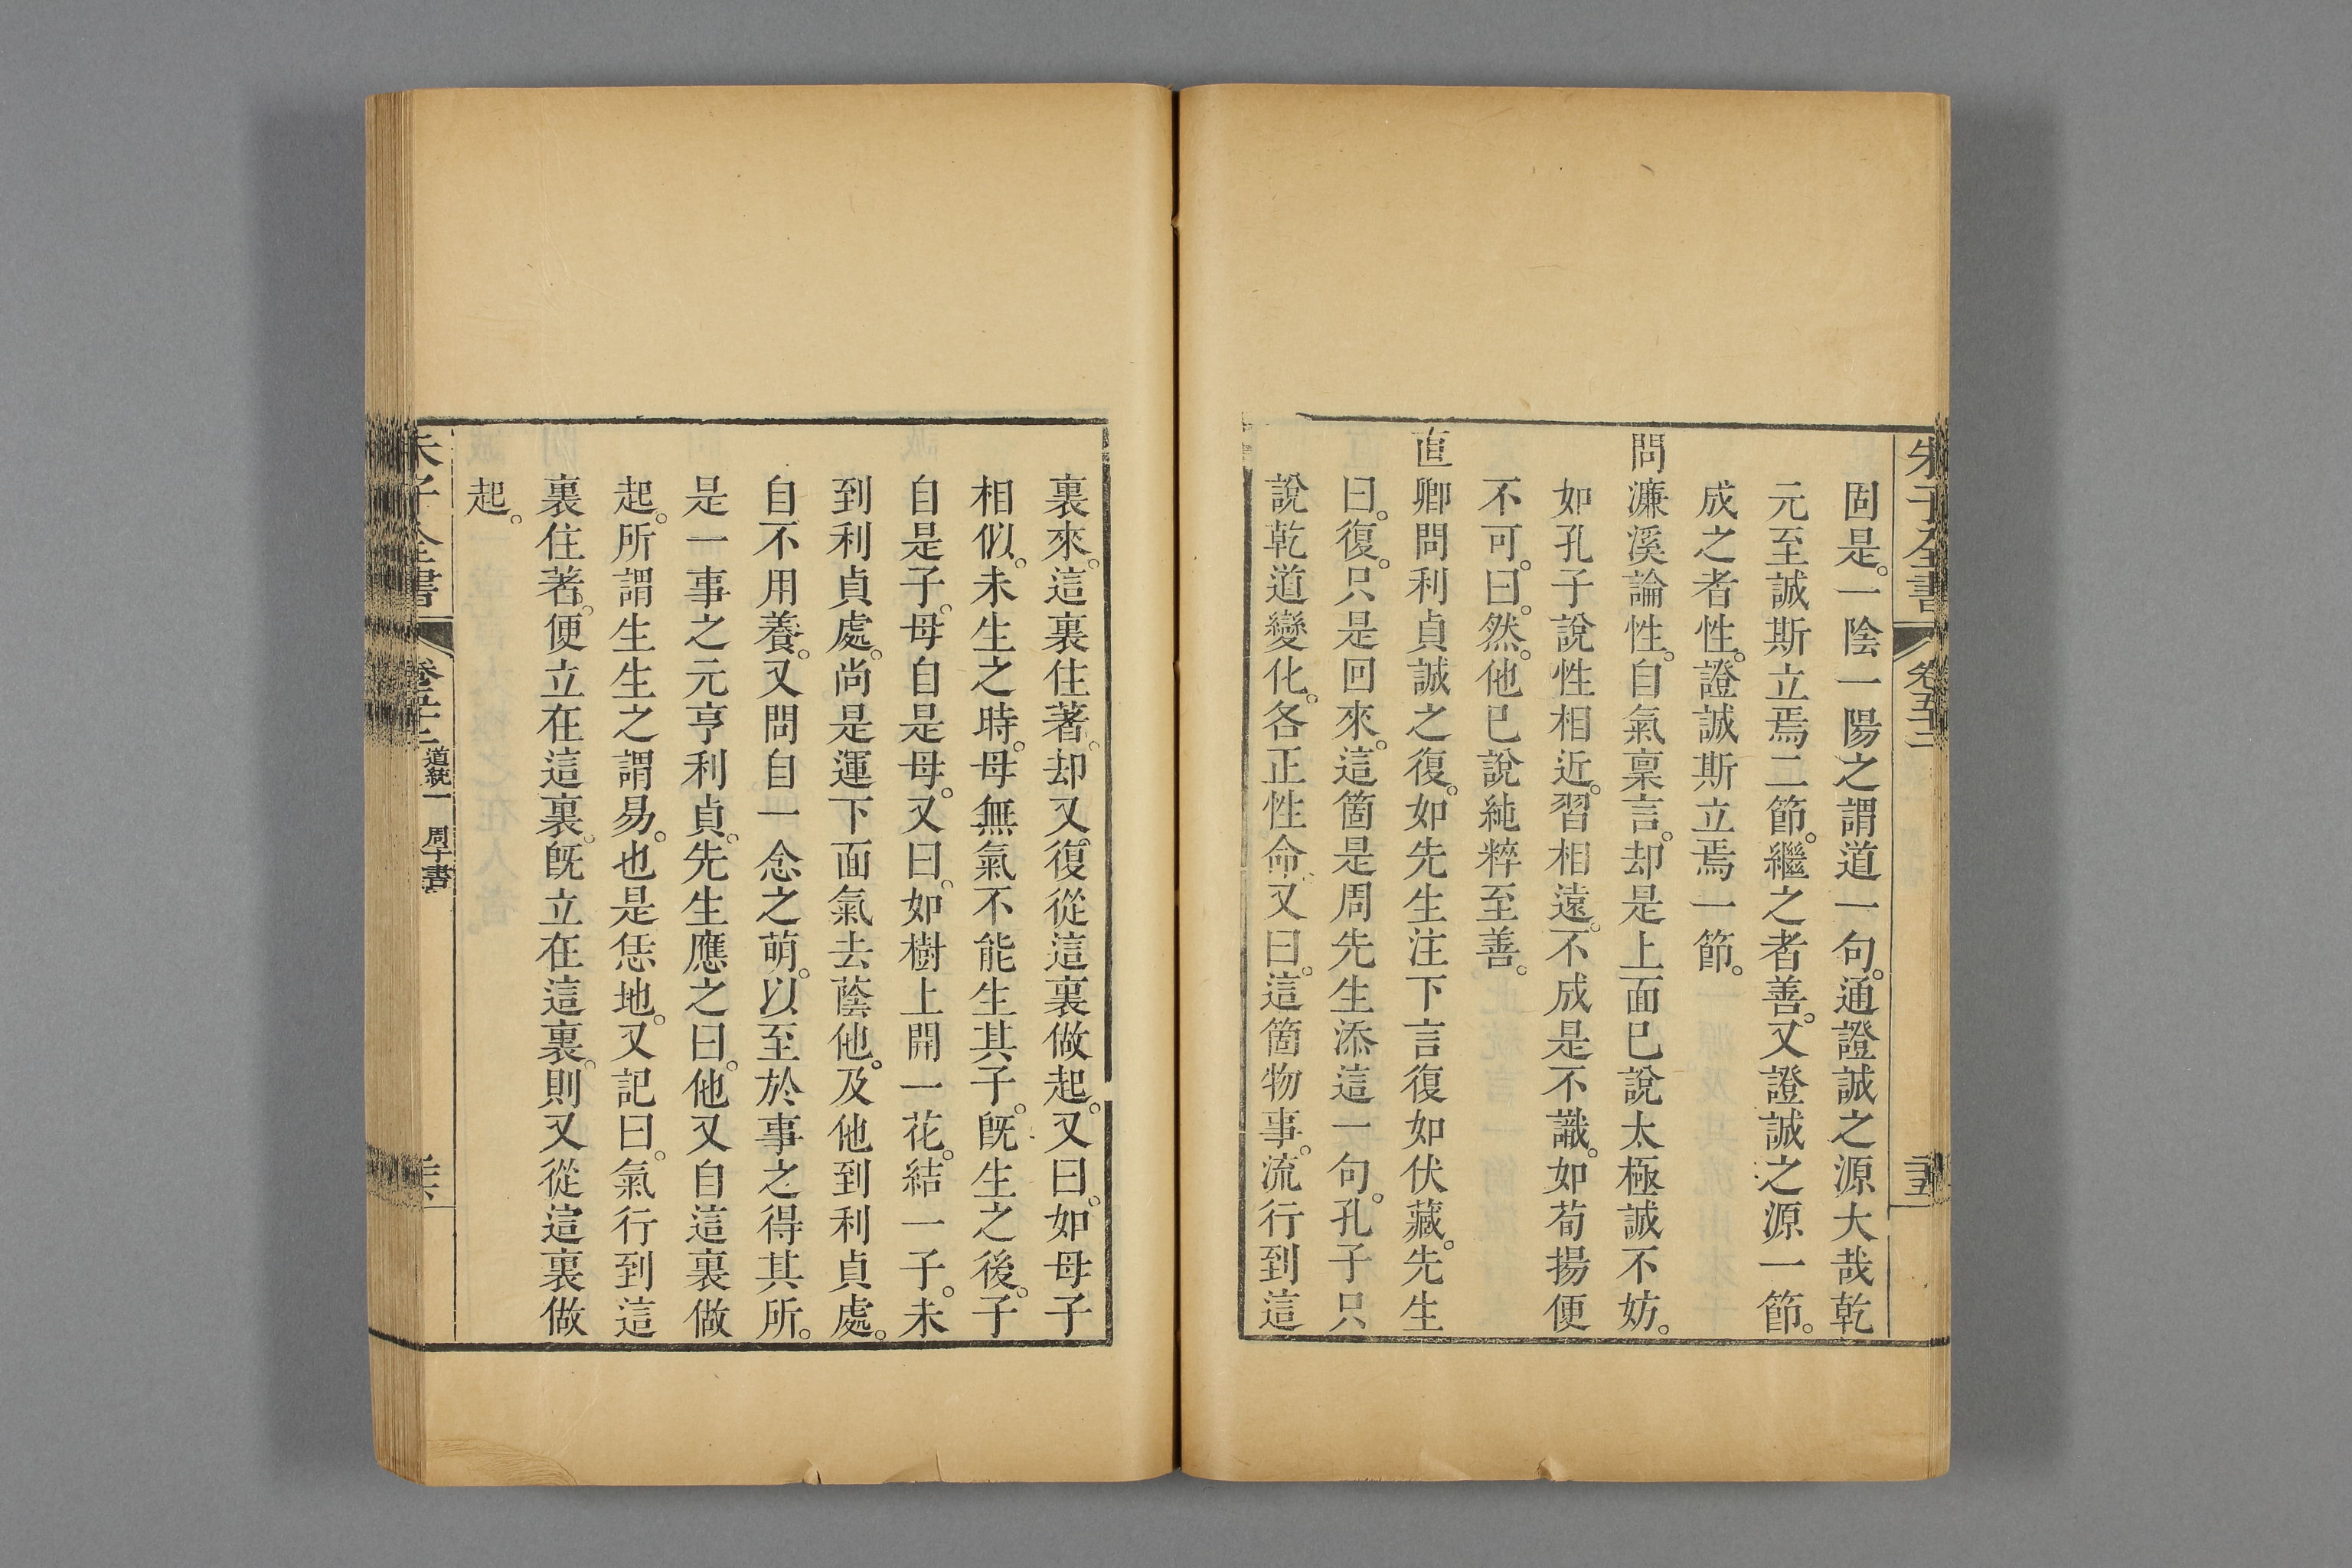 朱子全書 卷五十二
固是。一陰一陽之謂道一句。通證誠之源大哉乾
元至誠斯立焉二節。繼之者善。又證誠之源一節。
成之者性。證誠斯立焉一節。
問濂溪論性。自氣稟言。却是上面已說太極誠不妨。
如孔子說性相近。習相遠。不成是不識。如荀揚便
不可。曰。然。他已說純粹至善。
直卿問利貞誠之復。如先生注下言復如伏藏。先生
曰。復。只是回來。這箇是周先生添這一句。孔子只
說乾道變化。各正性命。又曰。這箇物事。流行到這
裏來。這裏住著。却又復從這裏做起。又曰。如母子
相似。未生之時。母無氣不能生其子。旣生之後。子
自是子。母自是母。又曰。如樹上開一花。結一子。未
到利貞處。尚是運下面氣去蔭他。及他到利貞處。
自不用養。又問自一念之萌。以至於事之得其所。
是一事之元亨利貞。先生應之曰。他又自這裏做
起。所謂生生之謂易。也是恁地。又記曰。氣行到這
裏住著。便立在這裏。旣立在這裏。則又從這裏做
起。
朱子全書 卷五十二 道統一 周子書